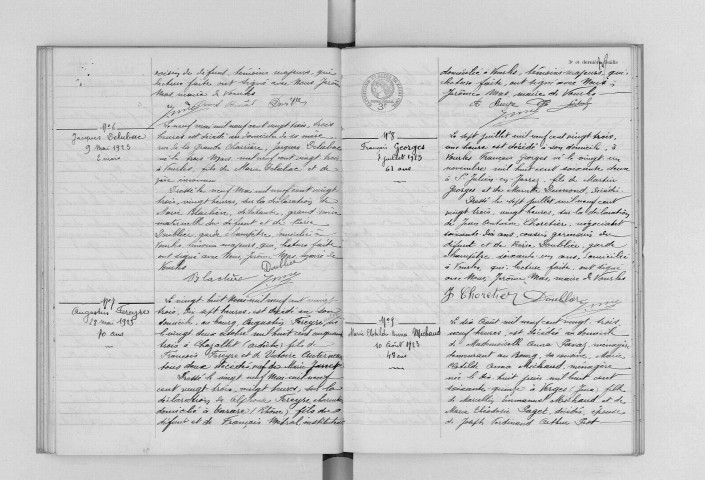 voisins du défunt, témoins majeurs, qui
lecture faite ont signé avec Nous Jérôme
Mas maire de Vourles
N° 6
Jacques Delubac
9 Mai 1923
2 mois
Le neuf mai mil neuf cent vingt trois, trois
heures est décédé au domicile de sa mère
rue de la grande Charrière, Jacques Delubac
né le trois Mars mil neuf cent vingt trois
à Vourles, fils de Marie Delubac et de
père inconnu
Dressé le neuf Mai mil neuf cent vingt
trois, vingt heures, sur la déclaration de
Marie Blachère, grand mère
maternelle du défunt et de Marie
Doublier garde champêtre, domiciliés à
Vourles témoins majeurs qui, lecture faite
ont signé avec Nous Jérôme Mas maire de
Vourles
Doublier
Blachère
N° 7
Augustin Fereyre
29 mai 1923
70 ans
Le vingt huit Mai mil neuf cent vingt
trois, sept heures, est décédé en son
domicile, au bourg, Augustin Fereyre, né
le vingt deux octobre mil huit cent cinquante
trois à (Ardèche) fils de
François Fereyre et de Victoire
tous deux décédés, veuf de Marie
Dressé le vingt neuf Mai mil neuf
cent vingt trois, vingt heures, sur la
déclaration de Alphonse Fereyre
domicilié à Tarare (Rhône) fils du
défunt et de François Mistral instituteur
2e et dernier feuille
domicilié à Vourles, témoins majeurs, qui
lecture faite, ont signé avec Nous
Jérôme Mas, maire de Vourles
N° 8
François Georges
7 juillet 1923
61 ans
Le sept juillet mil neuf cent vingt trois,
une heure est décédé à son domicile, à
Vourles François Georges né le vingt un
novembre mil huit cent soixante deux
à St Julien en Jarrez, fils de Martin
Georges et de Mariette Dumond, décédés.
Dressé le sept juillet mil neuf cent
vingt trois, vingt heures, sur la déclaration
de Jean Antoine Chorétier, négociant
soixante dix ans, cousin germain du
défunt et de Marie Doublier, garde
champêtre soixante un ans, domiciliés
à Vourles, qui lecture faite ont signé
avec Nous, Jérôme Mas, maire de Vourles
J. Chorétier Doublier
N° 9
Marie Clotilde Anna Michaud
10 Août 1923
48 ans
Le dix Août mil neuf cent vingt trois,
neuf heures, est décédée au domicile
de Mademoiselle Anna ménagère
demeurant au Bourg, sa cousine, Marie
Clotilde Anna Michaud, ménagère
née le dix huit juin mil huit cent
soixante quinze à Verges (Jura) fille
de Marcellin Emmanuel Michaud et de
Marie Paget, décédés, épouse
de Joseph Ferdinand Arthur